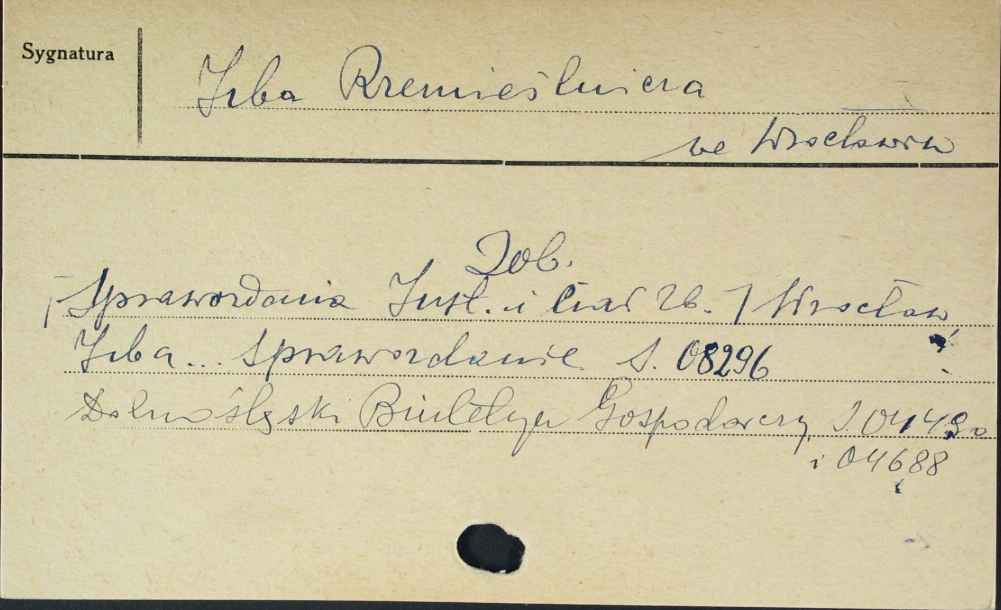 Sygnatura
Izba Rzemieślnicza
we Wrocławiu
Zob.
[Sprawozdania Inst. i Ciał Zb.] Wrocław,
Izba... Sprawozdanie S. 08296
Dolnośląski Biuletyn Gospodarczy
i 04688